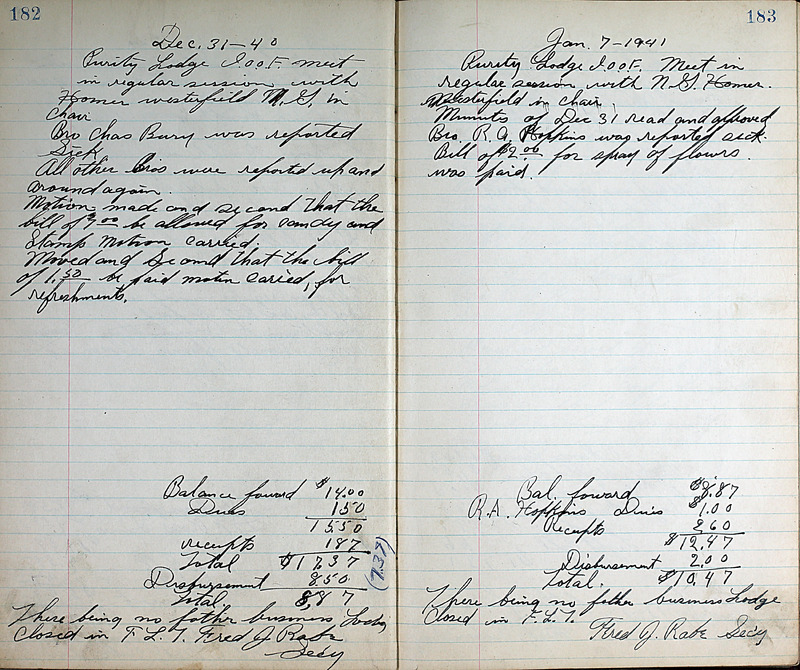 182
Dec. 31-40
Purity Lodge I.O.O.F. meet
in regular session with
Homer westerfield N.G. in
chair
Bro Chas Bury was reported
Sick
All other Bros were reported up and
around again.
Motion made and second that the
bill of $7.00 be allowed for candy and
Stamp Motion carried.
Moved and Second that the bill
of 1.50 be paid motion caried, for
refreshments.
Balance foward $14.00
Dues 150
1550
receipts 187
Total $1737
Disbursement 850
Total 887
(7.37)
There being no futher business Lodge
Closed in F. L. T. Fred J. Rabe
Secy
183
Jan. 7-1941
Purity Lodge I.O.O.F. Meet in
regular session with N.G. Homer.
Westerfield in chair
Minuits of Dec 31 read and approved
Bro. R. A. Hopkins was reported sick.
Bill of $2.00 for spray of flowers.
was paid.
Bal. foward $8.87
R.A. Hopkins Dues $1.00
Receipts 260
$12.47
Disbursement 2.00
Total. $10.47
There being no futher business Lodge
Closed in F. L. T.
Fred J. Rabe Secy